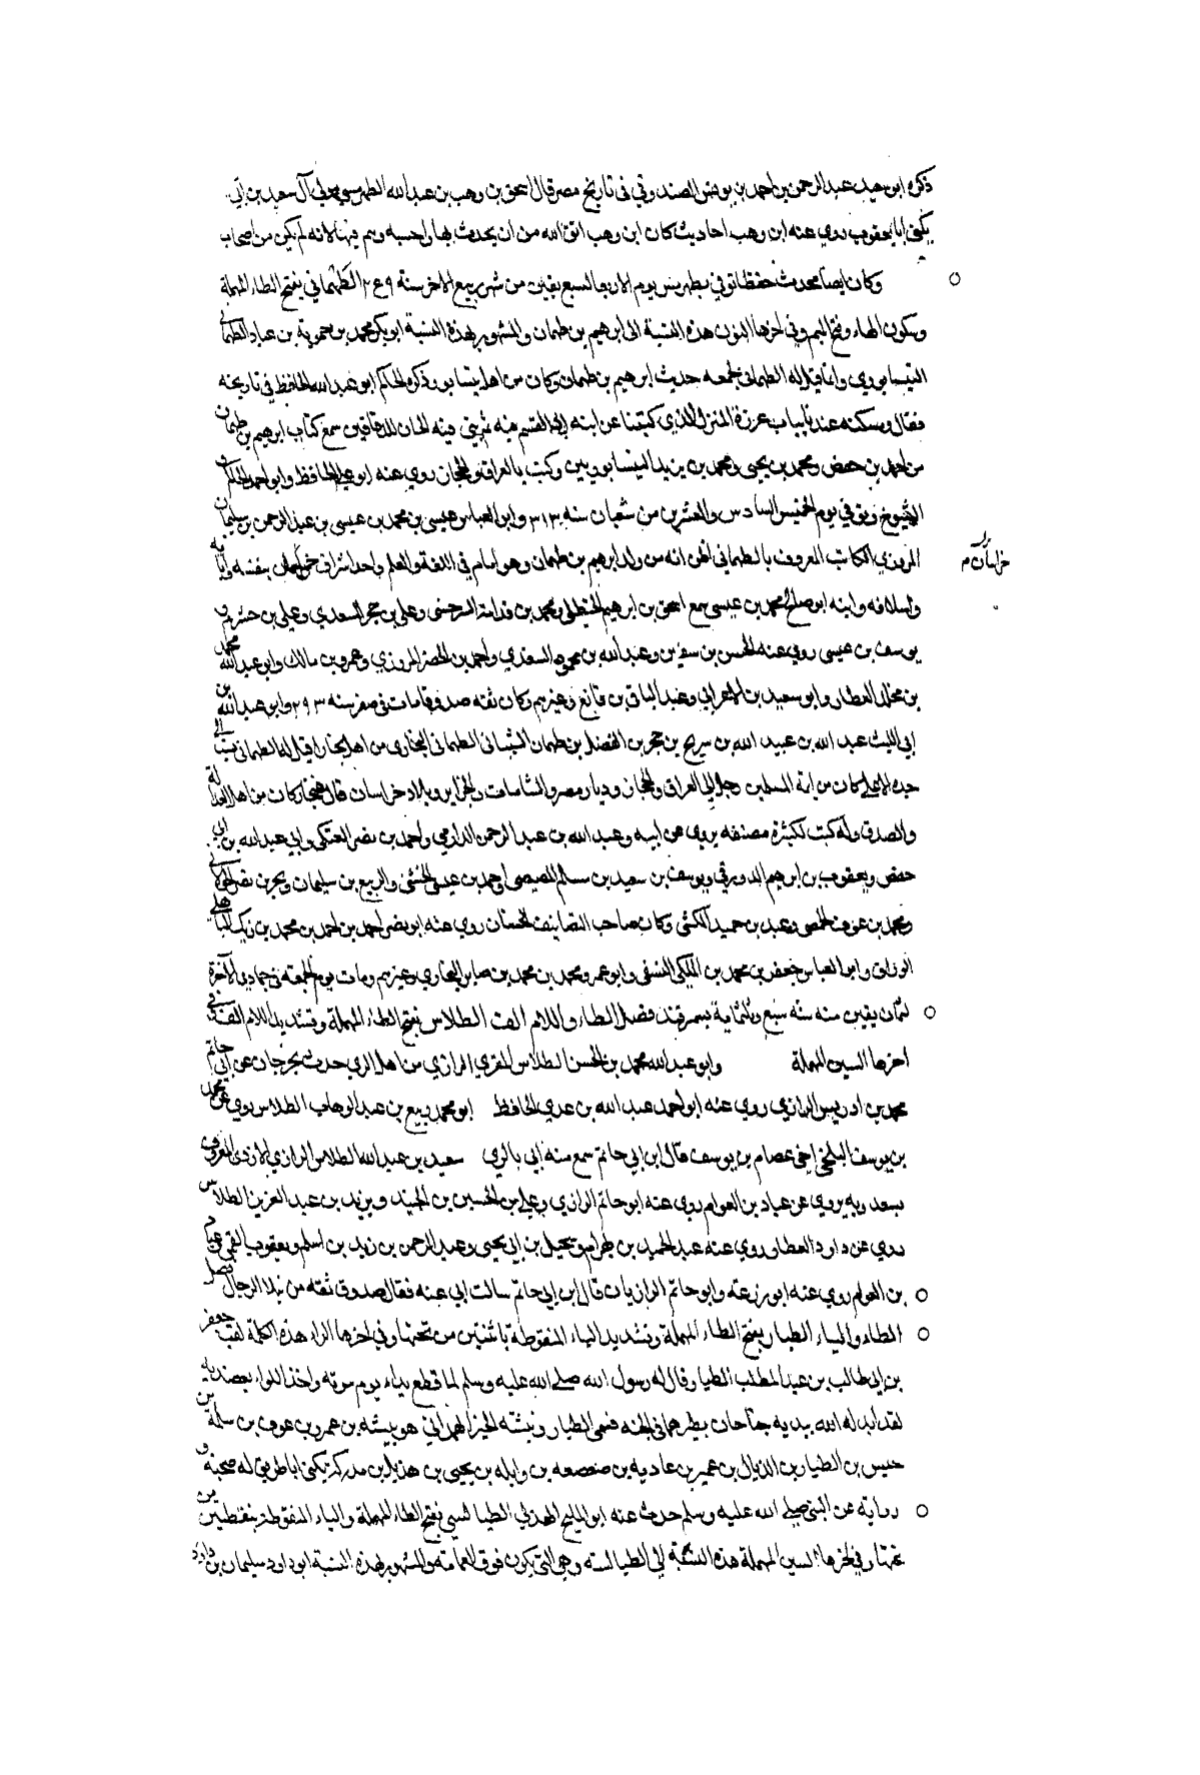 ذكره ابو سعيد عبد الرحمن بن احمد بن يونس الصدفي في تاريخ مصر قال اسحق بن وهب بن عبد الله الطهرمسي مولى آل سعيد بن ابي
يكنى ابا يعقوب روى عنه ابن وهب احاديث كان ابن وهب اتق الله من ان يحدث بها واحسبه وهم فيها لانه لم يكن من اصحاب
وكان ايضا محدث حفظا توفي بطهرمس يوم الاربعا لسبع بقين من شهر ربيع الاخر سنة الطهماني بفتح الطاء المهملة
وسكون الهاء وفتح الميم وفي اخرها النون هذه النسبة الى ابرهيم بن طهمان والمشهور بهذه النسبة ابو بكر محمد بن حموية بن عباد الطهماني
النيسابوري وانما قيل له الطهماني لجمعه حديث ابرهيم بن طهمان وكان من اهل نيسابور ذكره الحاكم ابو عبد الله الحافظ في تاريخه
فقال ومسكنه عندنا بباب عزرة المنزل الذي كتبنا عن ابنه ابي القسم فيه ثم بنى فيه الخان للدقاقين سمع كتاب ابرهيم بن طهمان
من احمد بن حفص ومحمد بن يحيى ومحمد بن يزيد النيسابوريين وكتب بالعراق والحجاز روى عنه ابو علي الحافظ وابو احمد الحاكم و
الشيوخ وتوفي يوم الخميس السادس والعشرين من شعبان سنه ٣١٣ وابو العباس عيسى بن محمد بن عيسى بن عبد الرحمن بن سليمان
المروزي الكاتب المعروف بالطهماني اظن انه من ولد ابرهيم بن طهمان وهو امام في اللغة والعلم واحد اشراف خراسان بنفسه وابايه
خراسان م
واسلافه وابنه ابو صالح محمد بن عيسى سمع اسحق بن ابرهيم الحنظلي ومحمد بن قدامة السرخسي وعلي بن حجر السعدي وعلي بن خشرم و
يوسف بن عيسى روى عنه الحسن بن سفين وعبد الله بن محمود السعدي واحمد بن الخضر المروزي وعمرو بن مالك وابو عبد الله محمد
بن مخلد العطار وابو سعيد بن الاعرابي وعبد الباقي بن قانع وغيرهم وكان ثقه صدوقا مات في صفر سنه ٢٩٣ وابو عبد الله بن
ابي الليث عبد الله بن عبيد الله بن سريج بن حجر بن الفضل بن طهمان الشيباني الطهماني البخاري من اهل بخارا قيل له الطهماني نسبة الى
جده الاعلى كان من ايمة المسلمين رحل الى العراق والحجاز وديار مصر والشامات والجزاير وبلاد خراسان قال غنجار كان من اهل العدالة
والصدق وله كتب لكثرة مصنفه يروي عن ابيه وعبد الله بن عبد الرحمن الدارمي واحمد بن نصر العتكي وابي عبد الله بن ابي
حفص ويعقوب بن ابرهيم الدورقي ويوسف بن سعيد بن مسلم المصيصي واحمد بن عيسى الخشني والربيع بن سليمان وبحر بن نصر الخولاني
ومحمد بن عوف الحمصي وعبد بن حميد الكشي وكان صاحب التصانيف الحسان روى عنه ابو نصر احمد بن احمد بن محمد بن زيك الباهلي
الوراق وابو العباس جعفر بن محمد بن المكي النسفي وابو عمرو محمد بن محمد بن صابر البخاري وغيرهم ومات يوم الجمعه في جمادى الآخرة
لثمان بقين منه سنه سبع وثلثماية بسمرقند فصل الطاء واللام الف الطلاس بفتح الطاء المهملة وتشديد اللام الف وفي
اخرها السين المهملة وابو عبد الله محمد بن الحسن الطلاس المقري الرازي من اهل الري حدث بجرجان عن ابي حاتم
محمد بن ادريس الرازي روى عنه ابو احمد عبد الله بن عدي الحافظ ابو محمد ربيع بن عبد الوهاب الطلاس روى عن محمد
بن يوسف البلخي اخي عصام بن يوسف قال ابن ابي حاتم سمع منه ابي بالري سعيد بن عبد الله الطلاس الرازي الازدي المعروف
بسعدويه يروي عن عباد بن العوام روى عنه ابو حاتم الرازي وعلي بن الحسين بن الجنيد ويزيد بن عبد العزيز الطلاس
روى عن داود العطار روى عنه عبد الحميد بن ويحيى بن ابي يحيى وعبد الرحمن بن زيد بن اسلم ويعقوب القمي وعباد
بن العوام روى عنه ابو زرعه وابو حاتم الرازيان قال ابن ابي حاتم سالت ابي عنه فقال صدوق ثقه من نبلا الرجال فصل
الطاء والياء الطيار بفتح الطاء المهملة وتشديد الياء المنقوطة باثنتين من تحتها وفي اخرها الراء هذه الكلمة لقب جعفر
بن ابي طالب بن عبد المطلب الطيار وقال له رسول الله صلى الله عليه وسلم لما قطع يداه يوم موته واخذ اللواء بعضديه
لقد ابدله الله بيديه جناحان يطير بهما في الجنه فسمي الطيار ونبيشه الخير الهذلي هو نبيشه بن عمرو بن عوف بن سلمة بن
حبيس بن الطيار بن الذيال بن عمير بن عادية بن صعصعه بن وايله بن يحيى بن هذيل بن مدركه يكنى ابا طريف له صحبة و
رواية عن النبي صلى الله عليه وسلم حدث عنه ابو المليح الهذلي الطيالسي بفتح الطاء المهملة والياء المنقوطة بنقطتين من
تحتها وفي اخرها السين المهملة هذه النسبة الى الطيالسه وهي التي يكون فوق العمامة والمشهور بهذه النسبة ابو داود سليمان بن داود